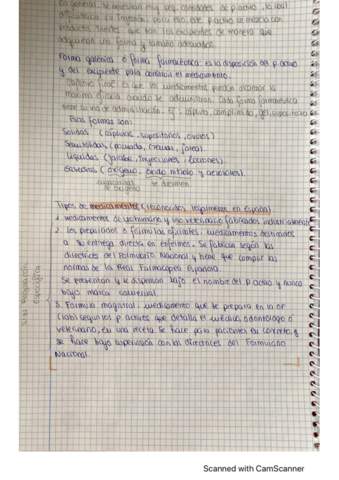 En general, se necesitan muy peq. cantidades de p.activo, lo cual
dificultaría su ingestión, por eso este p activo se mezcla con
productos inertes que son los excipientes de manera que
adquieran una forma y tamaño adecuados.
Forma galénica o forma farmacéutica: es la disposición del p.activo
y del excipiente para constituir el medicamento.
Objetivo final: es que los medicamentos puedan alcanzar la
máxima eficacia cuando se administran. Cada forma farmacéutica
tiene su vía de administración. Ej: cápsula, comprimido, gel, supositorio
Esas formas son:
Sólidas (cápsulas, supositorios, óvulos)
Semisólidas (pomada, cremas,
Líquidas (jarabe, inyecciones, lociones).
Gaseosas (oxígeno, óxido nitroso y aerosoles).
de oxígeno
Tipos de medicamentos (reconocidos legalmente en España)
1. medicamentos de uso humano y uso veterinario fabricados industrialmente
2. Los preparados o fórmulas oficinales: medicamentos destinados
a su entrega directa en enfermos. Se fabrican según las
directrices del Formulario Nacional y tiene que cumplir las
normas de la Real Farmacopea Española.
Se presentan y se dispensan bajo el nombre del p.activo y nunca
bajo marca comercial.
3. Fórmula magistral: medicamento que se prepara en la OF
(lab) según los p activos que detalla el médico, odontólogo o
veterinario, en una receta. Se hace para pacientes en concreto, y
se hace bajo supervisión con las directrices del Formulario
Nacional.
Scanned with CamScanner